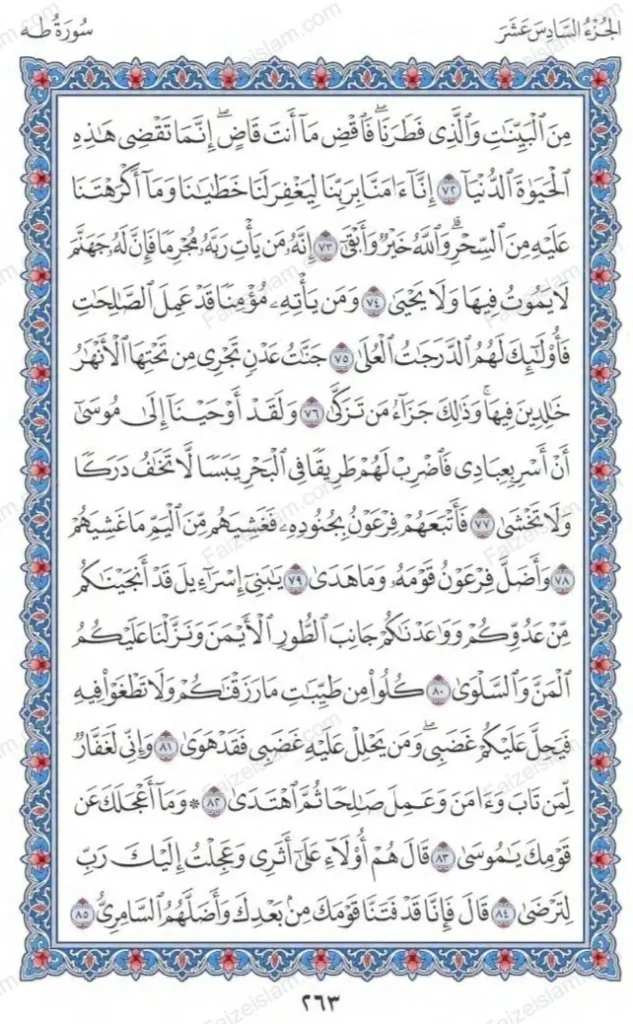 الجُزْءُ السَّادِسَ عَشَرَ
سُورَةُ طه
مِنَ ٱلْبَيِّنَٰتِ وَٱلَّذِى فَطَرَنَاۖ فَٱقْضِ مَآ أَنتَ قَاضٍۖ إِنَّمَا تَقْضِى هَٰذِهِ
ٱلْحَيَوٰةَ ٱلدُّنْيَآ ٧٢ إِنَّآ ءَامَنَّا بِرَبِّنَا لِيَغْفِرَ لَنَا خَطَٰيَٰنَا وَمَآ أَكْرَهْتَنَا
عَلَيْهِ مِنَ ٱلسِّحْرِۗ وَٱللَّهُ خَيْرٌ وَأَبْقَىٰٓ ٧٣ إِنَّهُۥ مَن يَأْتِ رَبَّهُۥ مُجْرِمًا فَإِنَّ لَهُۥ جَهَنَّمَ
لَا يَمُوتُ فِيهَا وَلَا يَحْيَىٰ ٧٤ وَمَن يَأْتِهِۦ مُؤْمِنًا قَدْ عَمِلَ ٱلصَّٰلِحَٰتِ
فَأُو۟لَٰٓئِكَ لَهُمُ ٱلدَّرَجَٰتُ ٱلْعُلَىٰ ٧٥ جَنَّٰتُ عَدْنٍ تَجْرِى مِن تَحْتِهَا ٱلْأَنْهَٰرُ
خَٰلِدِينَ فِيهَاۚ وَذَٰلِكَ جَزَآءُ مَن تَزَكَّىٰ ٧٦ وَلَقَدْ أَوْحَيْنَآ إِلَىٰ مُوسَىٰٓ
أَنْ أَسْرِ بِعِبَادِى فَٱضْرِبْ لَهُمْ طَرِيقًا فِى ٱلْبَحْرِ يَبَسًا لَّا تَخَٰفُ دَرَكًا
وَلَا تَخْشَىٰ ٧٧ فَأَتْبَعَهُمْ فِرْعَوْنُ بِجُنُودِهِۦ فَغَشِيَهُم مِّنَ ٱلْيَمِّ مَا غَشِيَهُمْ
٧٨ وَأَضَلَّ فِرْعَوْنُ قَوْمَهُۥ وَمَا هَدَىٰ ٧٩ يَٰبَنِىٓ إِسْرَٰٓءِيلَ قَدْ أَنجَيْنَٰكُم
مِّنْ عَدُوِّكُمْ وَوَٰعَدْنَٰكُمْ جَانِبَ ٱلطُّورِ ٱلْأَيْمَنَ وَنَزَّلْنَا عَلَيْكُمُ
ٱلْمَنَّ وَٱلسَّلْوَىٰ ٨٠ كُلُوا۟ مِن طَيِّبَٰتِ مَا رَزَقْنَٰكُمْ وَلَا تَطْغَوْا۟ فِيهِ
فَيَحِلَّ عَلَيْكُمْ غَضَبِىۖ وَمَن يَحْلِلْ عَلَيْهِ غَضَبِى فَقَدْ هَوَىٰ ٨١ وَإِنِّى لَغَفَّارٌ
لِّمَن تَابَ وَءَامَنَ وَعَمِلَ صَٰلِحًا ثُمَّ ٱهْتَدَىٰ ٨٢ * وَمَآ أَعْجَلَكَ عَن
قَوْمِكَ يَٰمُوسَىٰ ٨٣ قَالَ هُمْ أُو۟لَآءِ عَلَىٰٓ أَثَرِى وَعَجِلْتُ إِلَيْكَ رَبِّ
لِتَرْضَىٰ ٨٤ قَالَ فَإِنَّا قَدْ فَتَنَّا قَوْمَكَ مِنۢ بَعْدِكَ وَأَضَلَّهُمُ ٱلسَّامِرِىُّ ٨٥
٢٦٣
Faizeislam.com